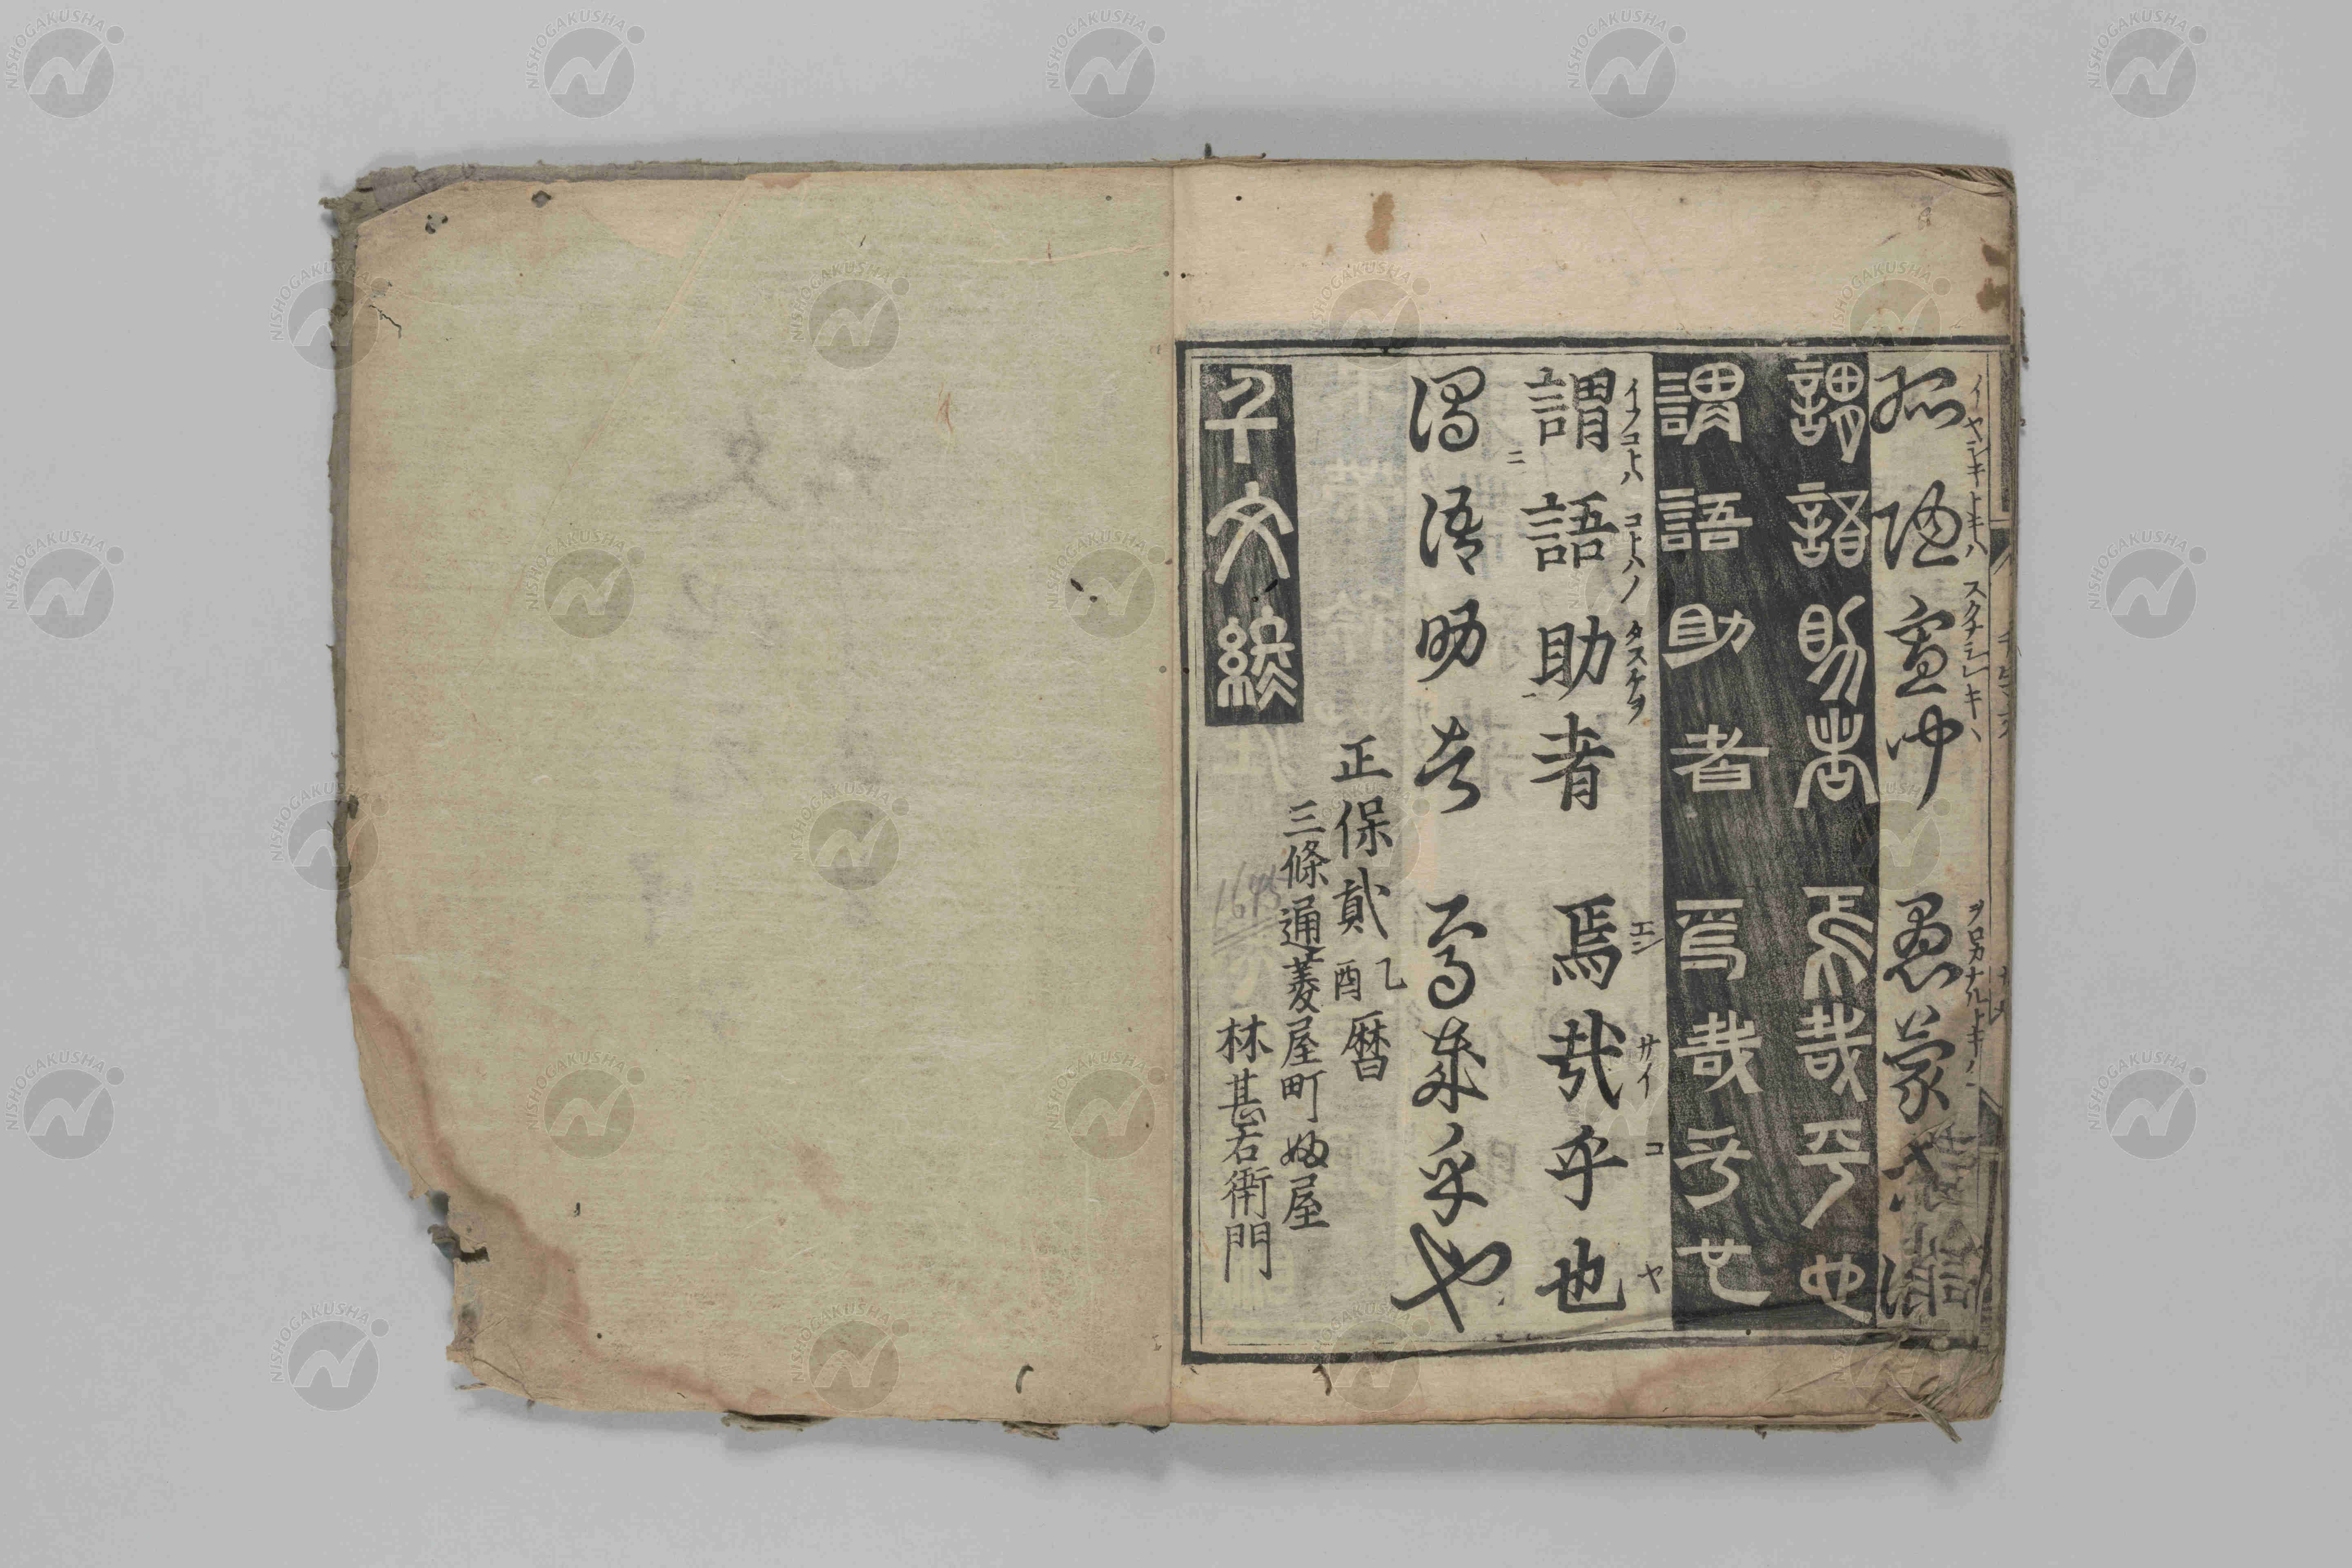 孤陋寡聞 愚蒙等誚
イヤシキトキハ スクナシキハ ヲロカナルトキノ
謂語助者 焉哉乎也
謂語助者 焉哉乎也
謂語助者 焉哉乎也
イフコトハ コトハノ タスケヲ エン サイ コ ヤ
二 一
謂語助者 焉哉乎也
千文終
正保貳乙酉暦
三條通菱屋町婦屋
林甚右衛門
1645
NISHOGAKUSHA